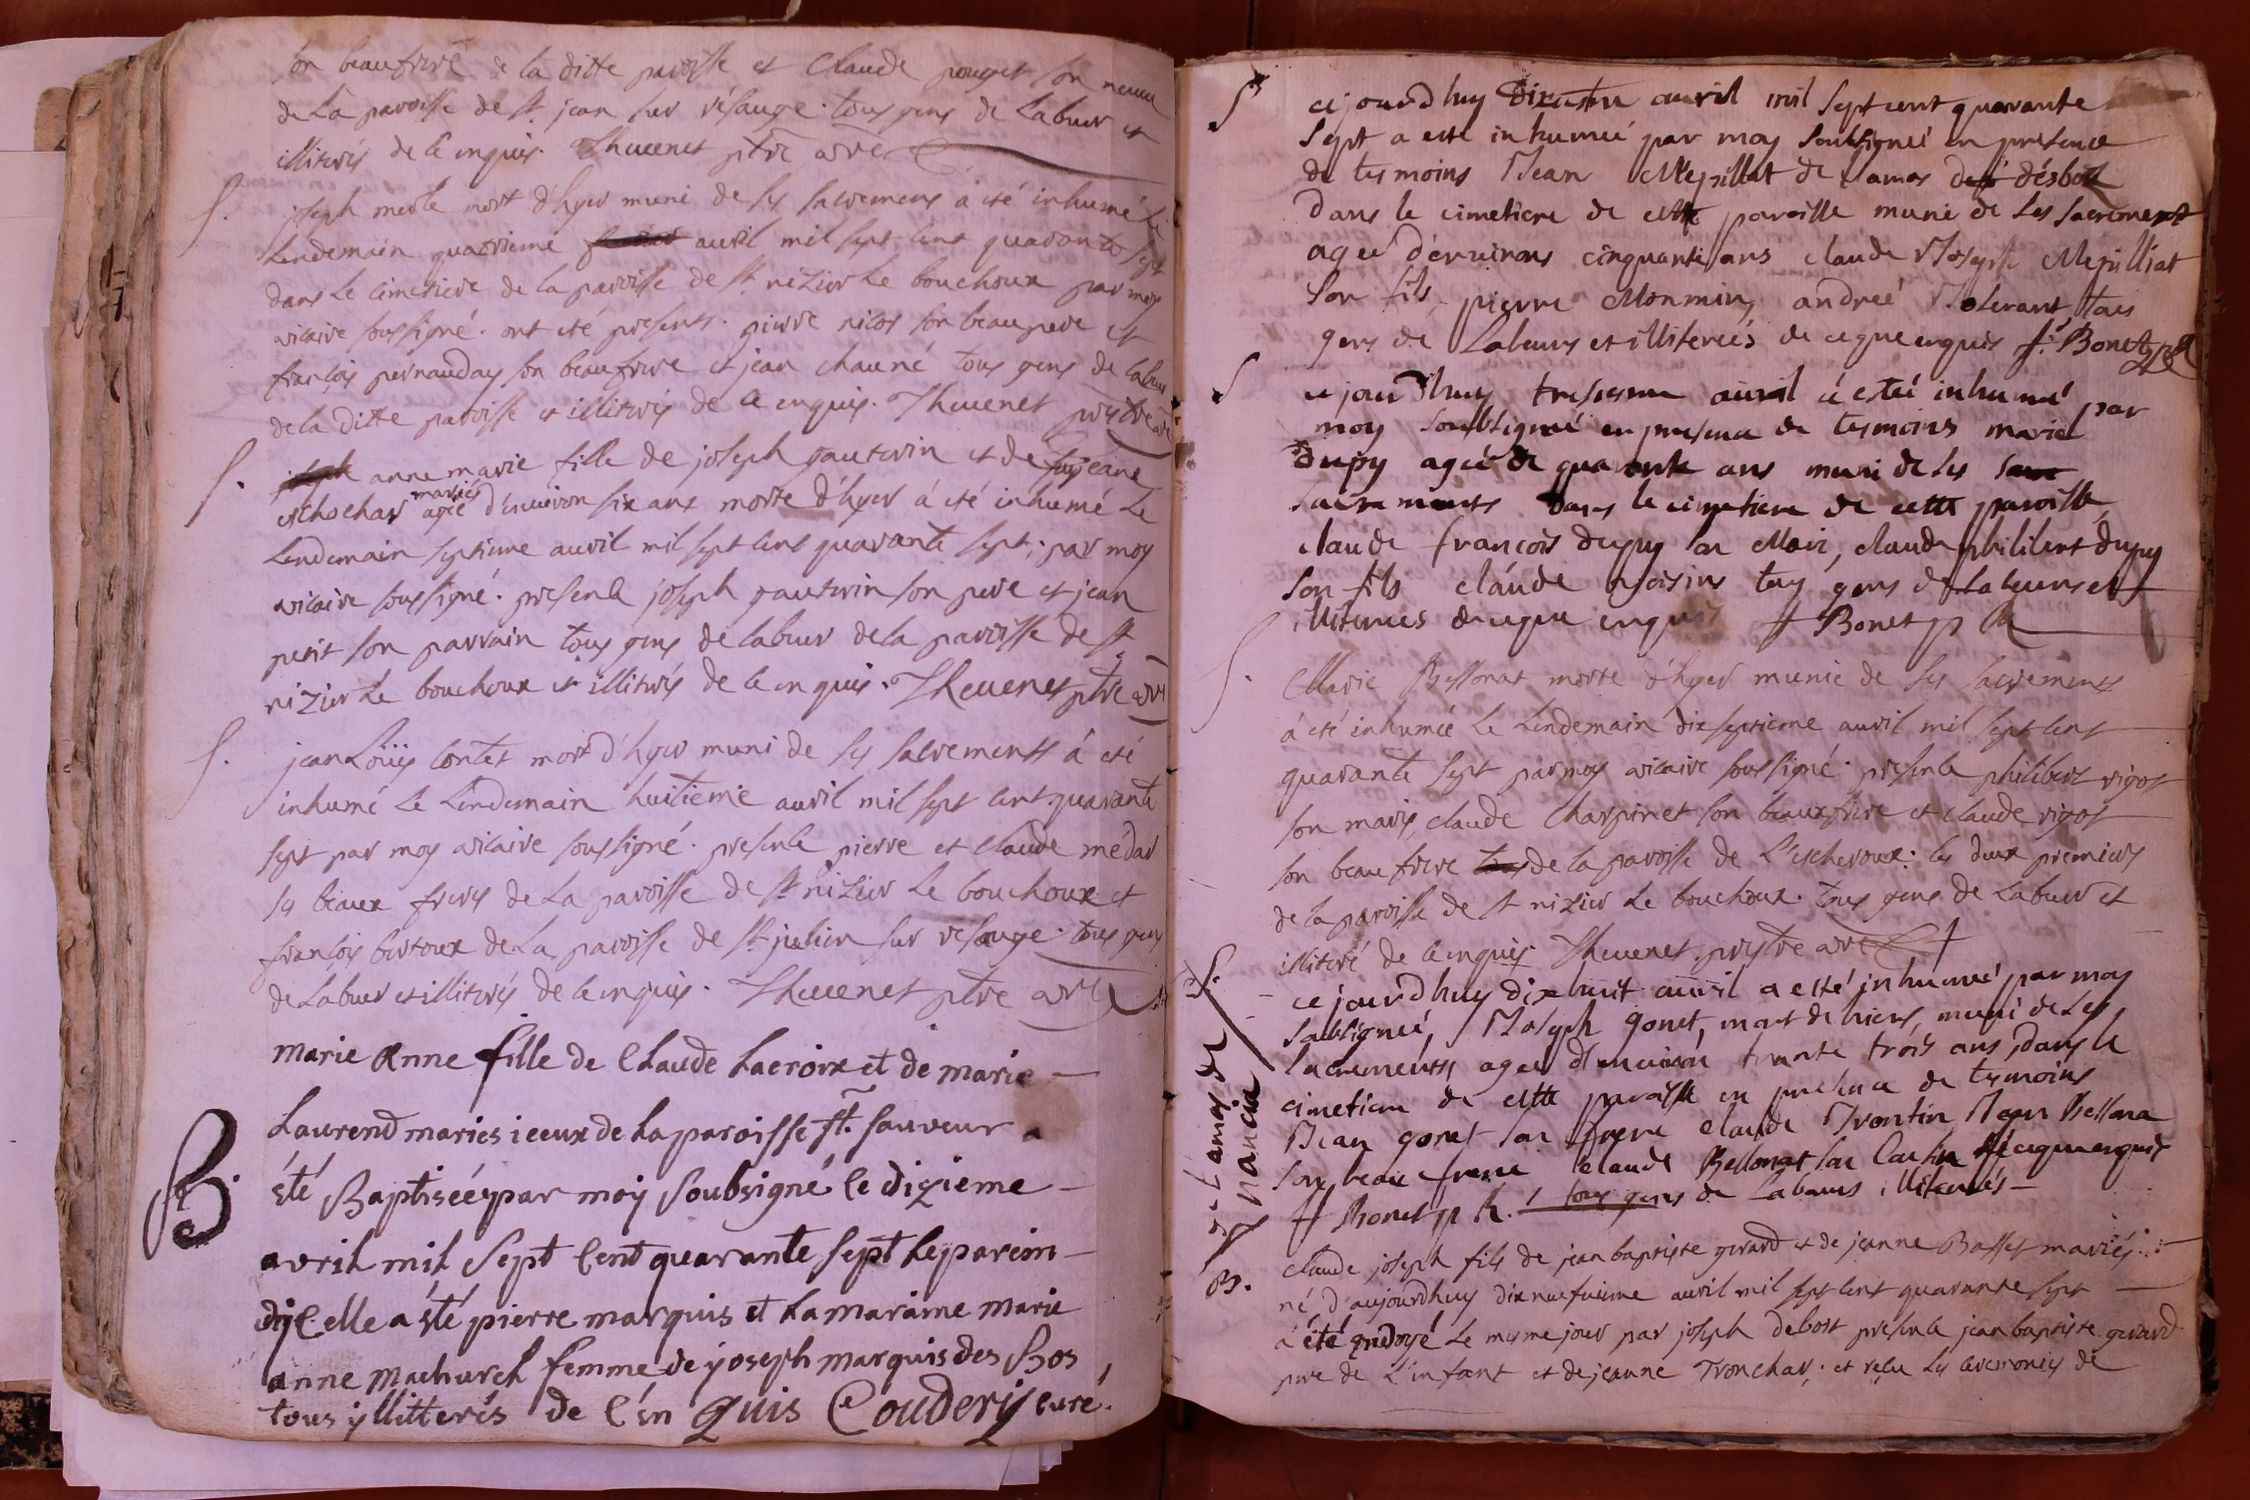 son beaufrere de la ditte paroisse et Claude pouget son neueu
de La paroisse de st jean sur résauge. tous gens de Labeur et
illiterés de ce enquis. Theuenet ptre vre
S. joseph merle mort d'hyer muni de ses sacremens à été inhumé Le
Lendemain quatrieme auril mil sept cent quarante sept
dans Le cimetiere de la paroisse de st nizier Le bouchoux par moy
vicaire soussigné. ont été presents. pierre nicot son beaupere et
françois pernauday son beaufrere et jean chauné tous gens de labeur
de la ditte paroisse et illiterés de ce enquis. Theuenet prestre vre
S. joseph anne marie fille de joseph gauterin et de jeanne
mariés
agée d'enuiron six ans morte d'hyer à été inhumé Le
Lendemain septieme auril mil sept cent quarante sept; par moy
vicaire soussigné. presence joseph gauterin son pere et jean
petit son parrain tous gens de labeur de la paroisse de st
nizier Le bouchoux et illiterés de ce enquis. Theuenet ptre vre
S. jean Loüis Contet mort d'hyer muni de ses sacrements à été
inhumé Le Lendemain huitieme auril mil sept cent quarante
sept par moy vicaire soussigné. presence pierre et Claude médar
ses beaux freres de La paroisse de st nizier Le bouchoux et
françois bertoux de La paroisse de st julien sur resauge. tous gens
de Labeur et illiterés de ce enquis. Theuenet ptre vre
marie Anne fille de Claude Lacroix et de marie
B. Laurend maries iceux de La paroisse st. sauveur a
été Baptiséé par moy soubsigné le dizieme
avril mil sept Cent quarante sept Le parein
dicelle a été pierre marquis et La maraine marie
anne machurel femme de yoseph marquis des Bos
tous yllitterés de C'én Quis Coudery curé.
S ce jourdhuy auril mil sept cent quarante
sept a esté inhumé par moy soubsigné en presence
de tesmoins Jean Mepillat de
Dans le cimetiere de cette paroisse muni de ses sacrement
agé d'enuirons cinquante ans claude Joseph Mepilliat
son fils, pierre Monmin, andreé tous
gens de Labeurs et illitereés de ceque enquis fr Bonet
S ce jourdhuy tresiesme auril a esté inhumé
par
moy soubsigné en presence de tesmoins marie
Dupy agée de quarante ans muni de ses
sacrements dans le cimetiere de cette paroisse
claude françois dupuy son Mari, claude philibert dupuy
son fils claude voisins tous gens de Labeurs et
illiterees de ceque enquis fr Bonet p R
S. Marie Bessonat morte d'hyer munie de ses sacrements
à été inhumée Le Lendemain dix septieme auril mil sept cent
quarante sept par moy vicaire soussigné. presence philibert rigot
son maris, claude Charpinet son beaufrere et claude rigot
son beaufrere tous de la paroisse de L'escheroux. les deux premiers
de la paroisse de st nizier Le bouchoux. tous gens de Labeur et
illiteré de ce enquis Theuenet prestre vre
S. ce jourdhuy dixhuit auril a esté inhumé par moy
Soubsigneé, Joseph gonet, mort de hiers, muni de ses
sacrements, agee d'enuiron trante trois ans, dans le
cimetiere de cette paroisse en presence de tesmoins
Jean gonet son frere claude Jean Bessona
son beau frere claude Bessonat son de ceque enquis
fr Bonet p R. tous gens de Labeurs illiterés
B. Claude joseph fils de jean baptiste gerard et de jeanne Basset mariés
né d'aujourdhuy dix neufuieme auril mil sept cent quarante sept
à été ondoyé Le mesme jour par joseph debost presence jean baptiste gerard
pere de L'infant et de jeanne Tronchar, et reçu Les ceremonies de